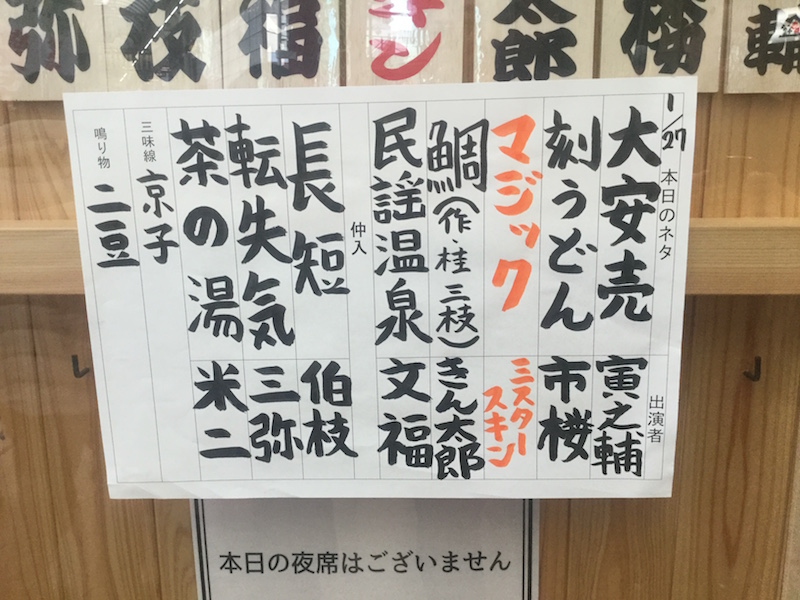 弥
枝
福
キン
太郎
桜
輔
1/27
本日のネタ
出演者
大安売
寅之輔
刻うどん
市桜
マジック
ミスター
スキン
鯛(作・桂三枝)
きん太郎
民謡温泉
文福
仲入
長短
伯枝
転失気
三弥
茶の湯
米二
三味線
京子
鳴り物
二豆
本日の夜席はございません